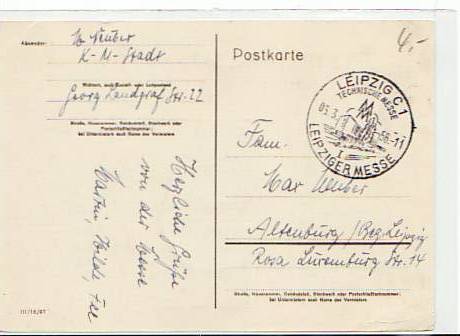 Absender:
W. Neuber
K-M-Stadt
Wohnort, auch Zustell- oder Leitpostamt
Georg Landgraf Str. 22
Straße, Hausnummer, Gebäudeteil, Stockwerk oder
Postschließfachnummer;
bei Untermietern auch Name des Vermieters
Herzliche Grüße
von der Messe
Martin, Hilde,
III/18/97
Postkarte
4,-
LEIPZIG C 1
TECHNISCHE MESSE
LEIPZIGER MESSE
Fam.
Max Neuber
Altenburg / Bez. Leipzig
Rosa Luxemburg Str. 14
Straße, Hausnummer, Gebäudeteil, Stockwerk oder Postschließfachnummer;
bei Untermietern auch Name des Vermieters